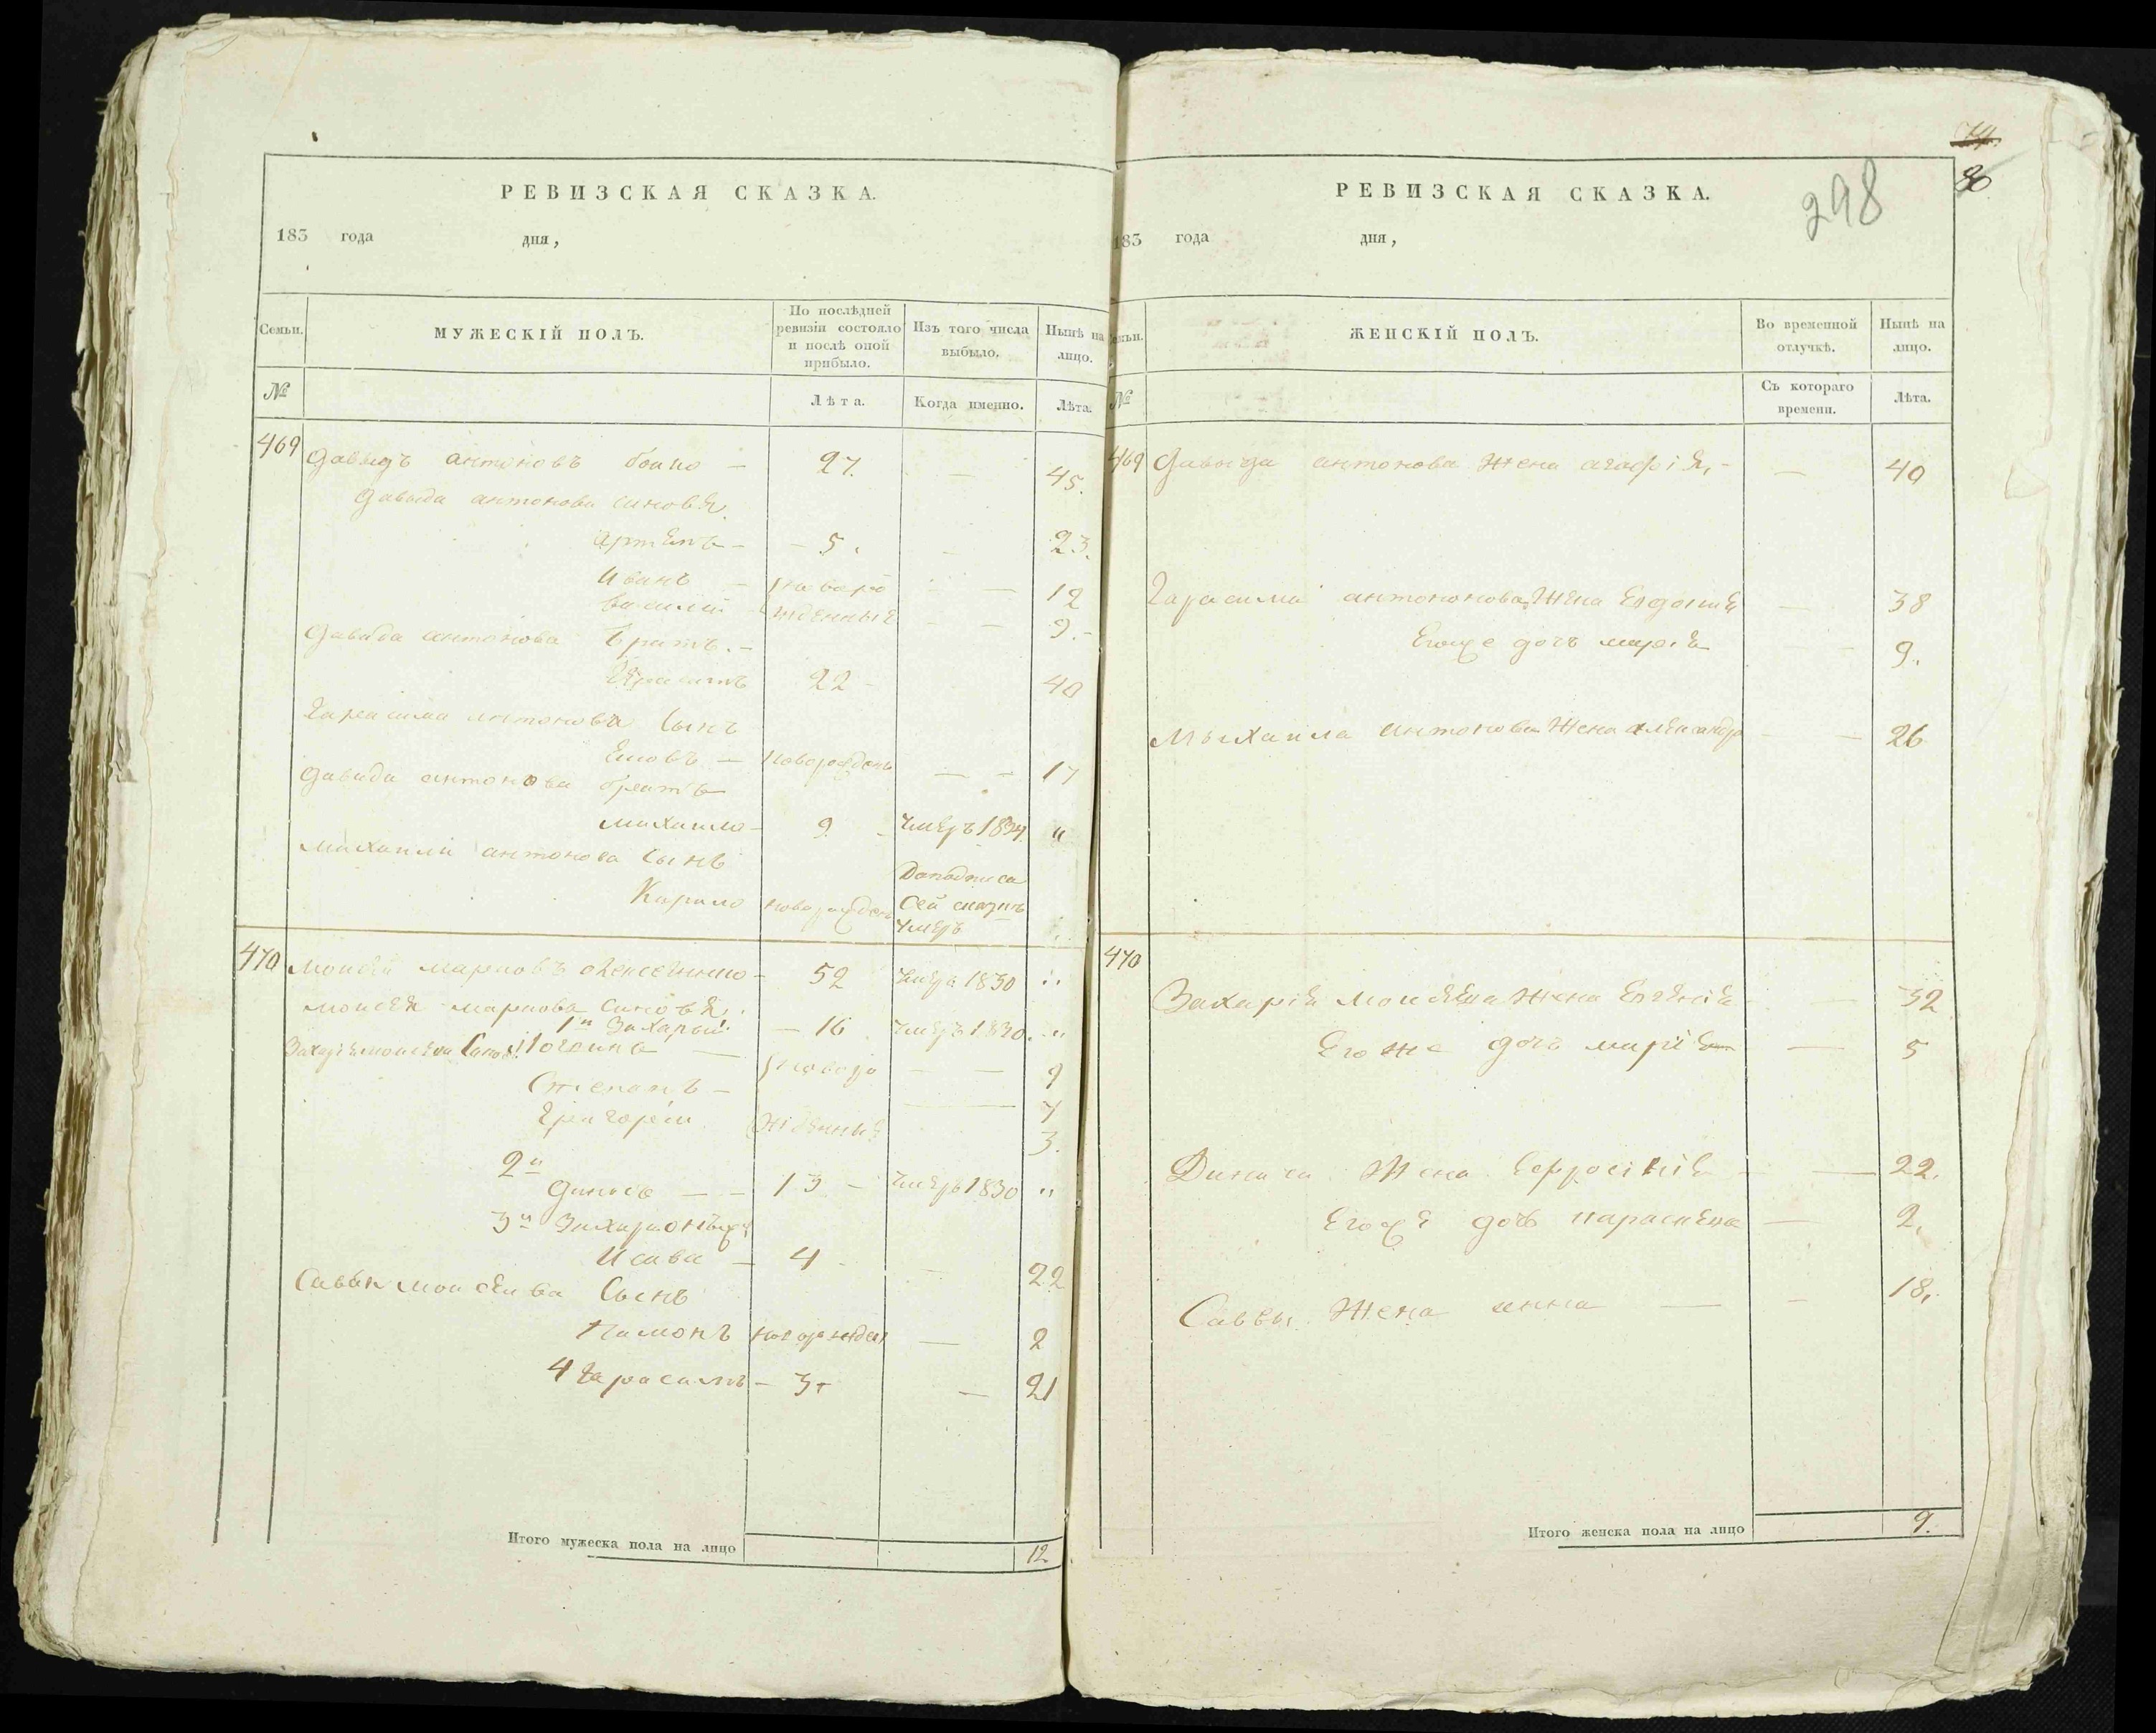 РЕВИЗСКАЯ СКАЗКА.
183 года дня,
Семьи. МУЖЕСКІЙ ПОЛЪ. По послѣдней ревизіи состояло и послѣ оной прибыло. Изъ того числа выбыло. Нынѣ на лицо.
№ Лѣта. Когда именно. Лѣта.
469 Давыдъ антоновъ бойко — 27. — 45.
Давыда антонова синовя
Артемъ — 5. 23.
Иванъ — новоро — 12
василій жденные — 9.
Давыда антонова братъ. —
22 — 40
Гарасима антонова Сынъ
новорожденъ — — 17
Давида антонова братъ
михаило — 9 умеръ 1834 "
михаила антонова Сынъ
Карило новорожденъ Доподписа
Сей сказки
умеръ
470 моисей марковъ — 52 умеръ 1830 "
моисея маркова синовя
1й Захарый — 16 умеръ 1830. "
Захарія моисеева Синов.
новоро — — 9
Степанъ — — 7
Григорей жденные 3.
2й
Динисъ — — 13 — умеръ 1830 "
3й
Исава — 4 — 22
Савы моисеива Сынъ
новорожден — 2
4 Гарасимъ — 3 — 21
Итого мужеска пола на лицо 12
74.
80
298
РЕВИЗСКАЯ СКАЗКА.
183 года дня,
Семьи. ЖЕНСКІЙ ПОЛЪ. Во временной отлучкѣ. Нынѣ на лицо.
№ Съ котораго времени. Лѣта.
469 Давыда антонова жена агафія, — — 40
Гарасима антонова жена Евдокия — 38
Егоже дочъ марія — 9.
Мыхаила антонова жена александр — 26
470
Захарія моисеева жена Евгенія — 32
Его же дочъ марія — 5
Диниса жена Ефросінія — 22.
Егоже дочъ параскева — 2.
Саввы жена анна — — 18.
Итого женска пола на лицо 9.